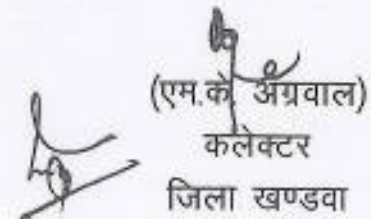 (एम.के. अग्रवाल)
कलेक्टर
जिला खण्डवा